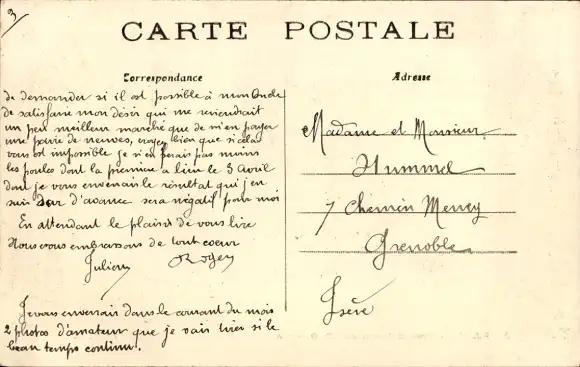 3
CARTE POSTALE
Correspondance
Adresse
de demander si il est possible à mon Oncle
de satisfaire mon désir qui me reviendrait
un peu meilleur marché que de m'en payer
une paire de neuves, croyez bien que si cela
vous est impossible je n'en ferais pas moins
les poules dont la première a lieu le 3 Avril
dont je vous enverrais le résultat qui j'en
suis sur d'avance sera négatif pour moi
En attendant le plaisir de vous lire
Nous vous embrassons de tout coeur
Julien Roger
Je vous enverrais dans le courant du mois
2 photos d'amateur que je vais tirer si le
beau temps continu.
Madame et Monsieur
Hummel
7 Chemin Meney
Grenoble
Isère